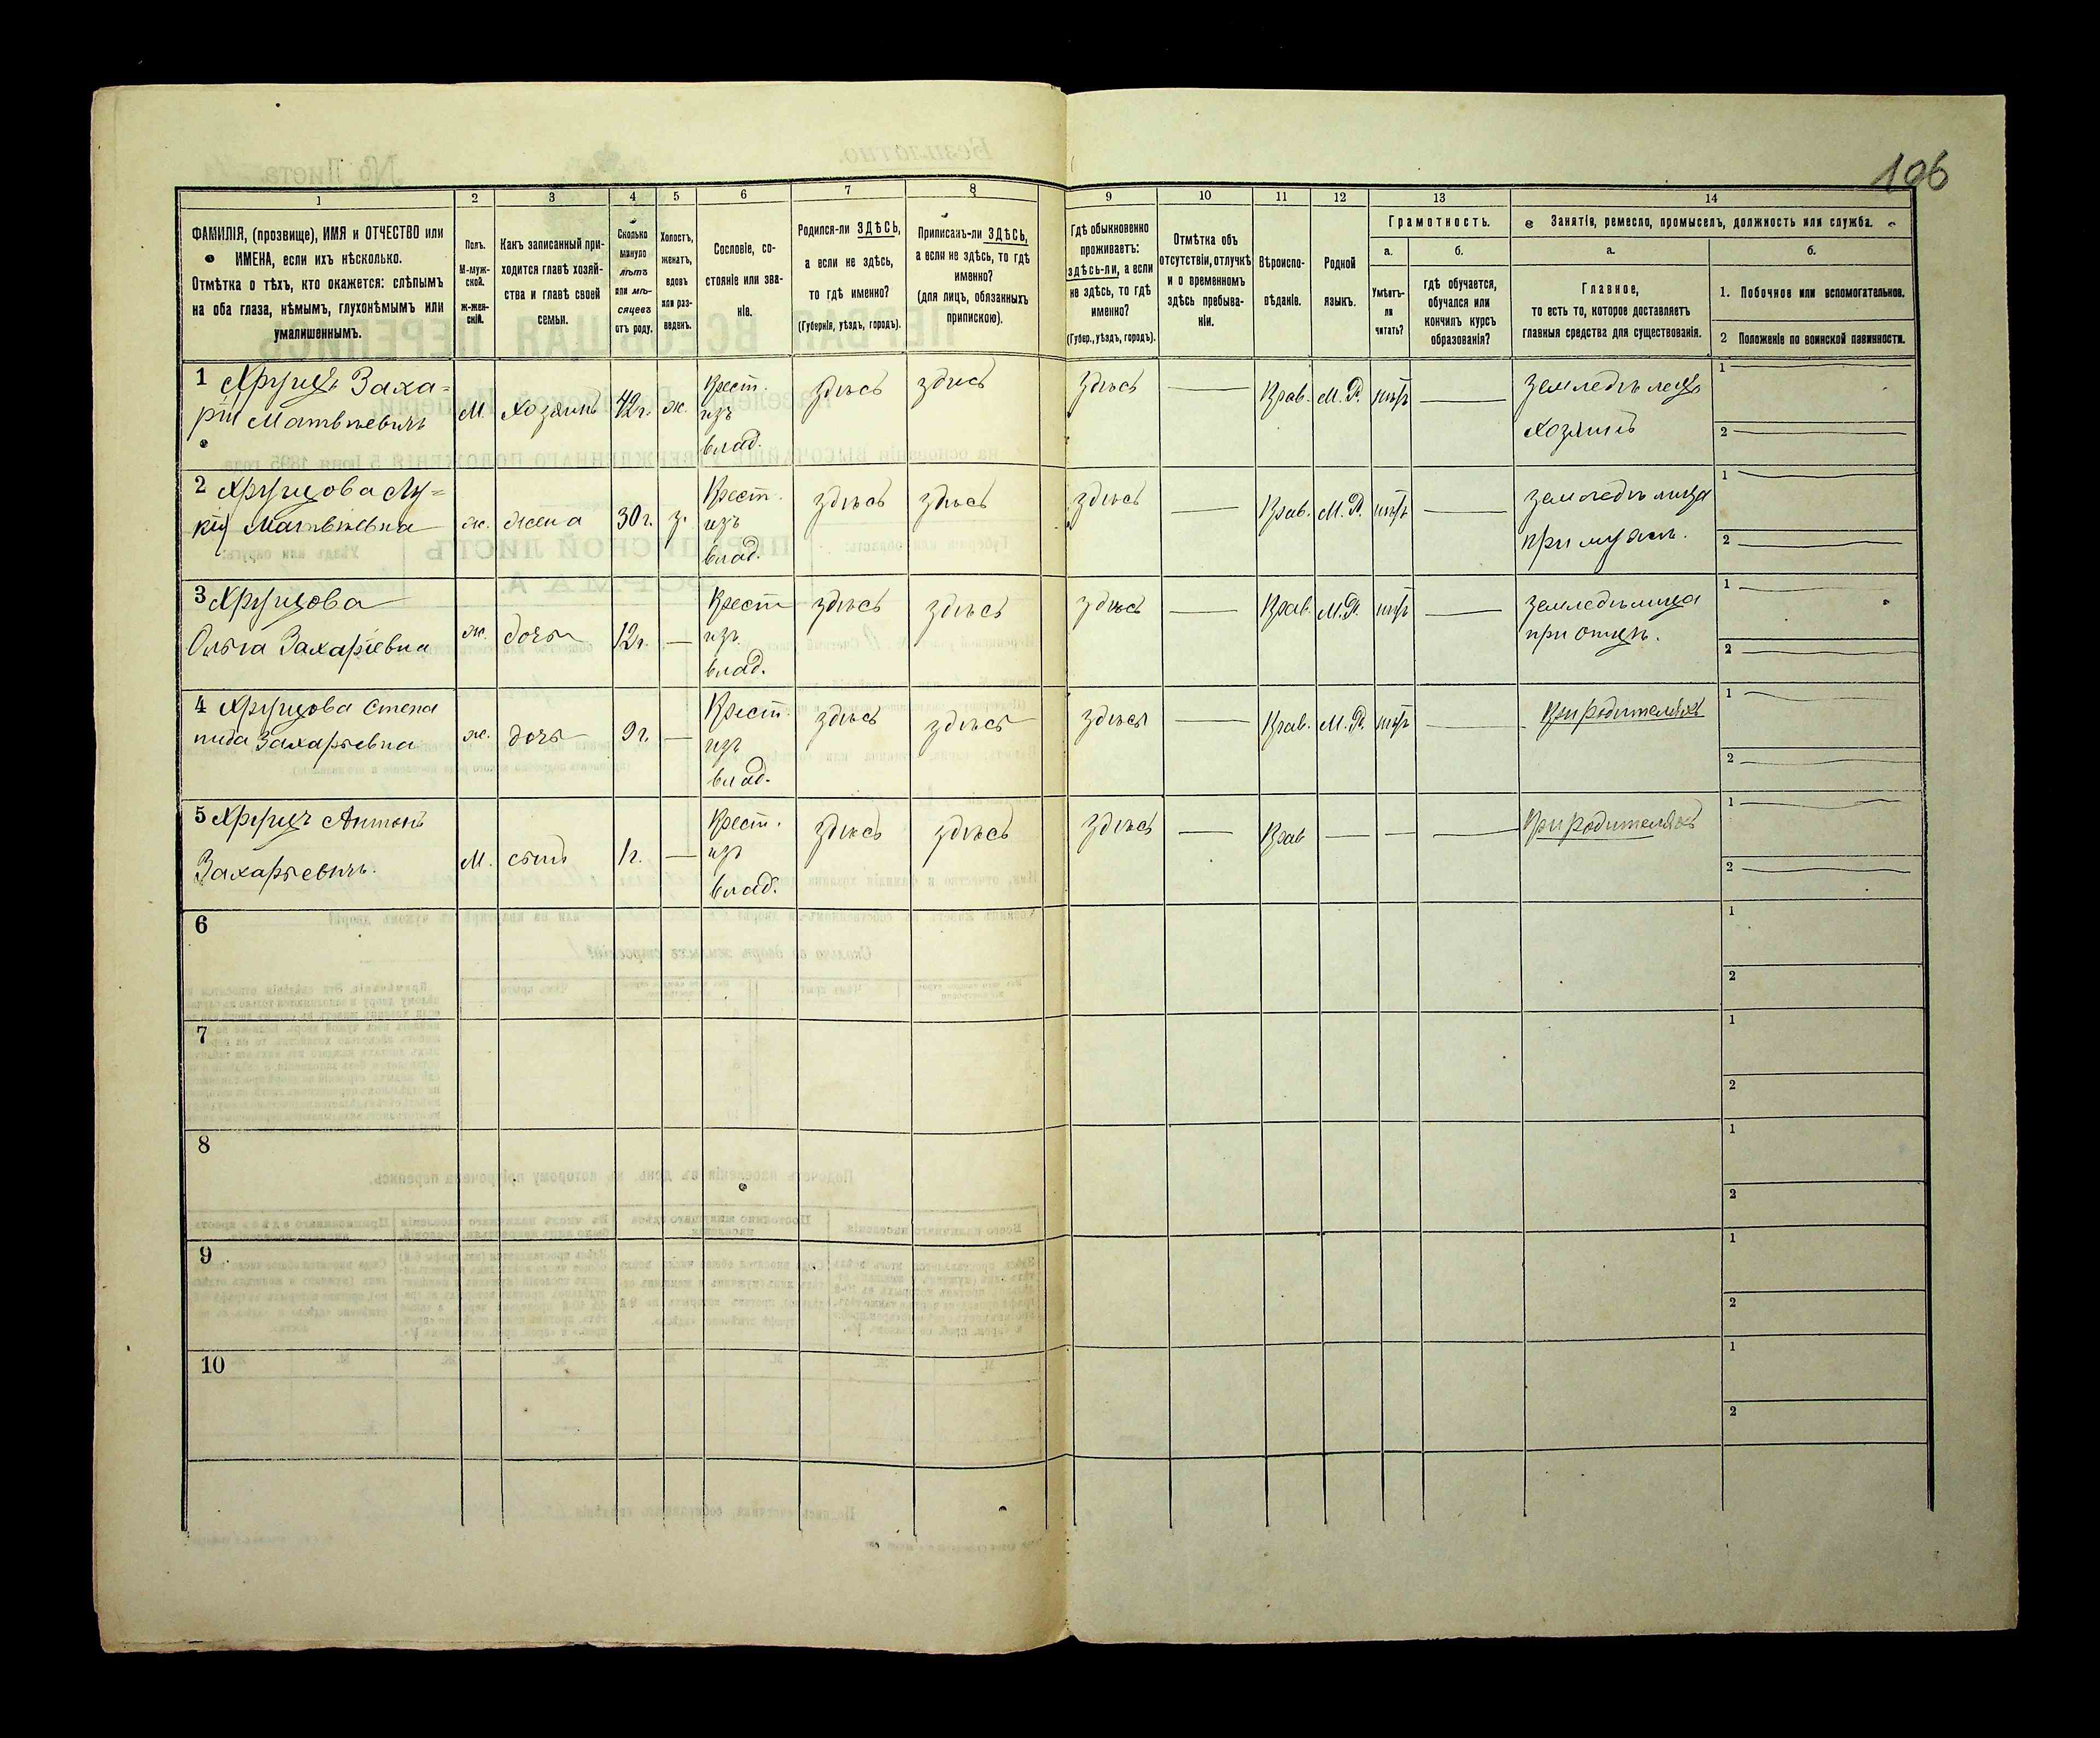 106
1 2 3 4 5 6 7 8 9 10 11 12 13 14
ФАМИЛІЯ, (прозвище), ИМЯ и ОТЧЕСТВО или
ИМЕНА, если ихъ нѣсколько.
Отмѣтка о тѣхъ, кто окажется: слѣпымъ
на оба глаза, нѣмымъ, глухонѣмымъ или
умалишеннымъ.
Полъ.
М-муж-
ской.
Ж-жен-
скій.
Какъ записанный при-
ходится главѣ хозяй-
ства и главѣ своей
семьи.
Сколько
минуло
лѣтъ
или мѣ-
сяцевъ
отъ роду.
Холостъ,
женатъ,
вдовъ
или раз-
веденъ.
Сословіе, со-
стояніе или зва-
ніе.
Родился-ли ЗДѢСЬ,
а если не здѣсь,
то гдѣ именно?
(Губернія, уѣздъ, городъ).
Приписанъ-ли ЗДѢСЬ,
а если не здѣсь, то гдѣ
именно?
(для лицъ, обязанныхъ
припискою).
Гдѣ обыкновенно
проживаетъ:
здѣсь-ли, а если
не здѣсь, то гдѣ
именно?
(Губер., уѣздъ, городъ).
Отмѣтка объ
отсутствіи, отлучкѣ
и о временномъ
здѣсь пребыва-
ніи.
Вѣроиспо-
вѣданіе.
Родной
языкъ.
Грамотность.
а.
Умѣетъ-
ли
читать?
б.
гдѣ обучается,
обучался или
кончилъ курсъ
образованія?
Занятія, ремесло, промыселъ, должность или служба.
а.
Главное,
то есть то, которое доставляетъ
главныя средства для существованія.
б.
1. Побочное или вспомогательное.
2 Положеніе по воинской повинности.
1 Хрущъ Заха-
рій Матвѣевичъ
М. Хозяинъ 42 г. ж.
Крест.
изъ
влад.
здѣсь здѣсь здѣсь — Прав. М. Р. нѣтъ —
Земледѣлецъ
хозяинъ
1
2
2 Хрущова Лу-
кія Матвѣевна
ж. жена 30 г. з.
Крест.
изъ
влад.
здѣсь здѣсь здѣсь — Прав. М. Р. нѣтъ —
земледѣлица
при мужѣ.
1
2
3 Хрущова
Ольга Захаріевна
ж. дочь 12 г. —
Крест
изъ
влад.
здѣсь здѣсь здѣсь — Прав. М. Р. нѣтъ —
земледѣлица
при отцѣ.
1
2
4 Хрущова Степа
нида Захарьевна
ж. дочь 9 г. —
Крест.
изъ
влад.
здѣсь здѣсь здѣсь — Прав. М. Р. нѣтъ —
При родителяхъ
1
2
5 Хрущъ Антонъ
Захарьевичъ.
М. сынъ 1 г. —
Крест.
изъ
влад.
здѣсь здѣсь здѣсь — Прав — — —
При родителяхъ
1
2
6
1
2
7
1
2
8
1
2
9
1
2
10
1
2